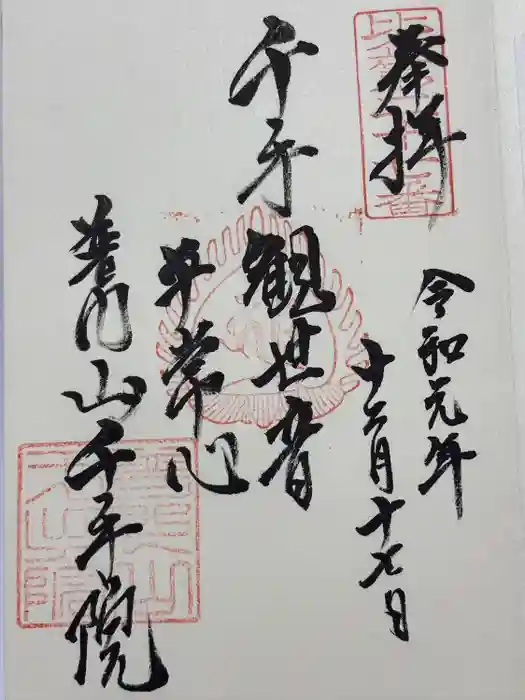 奉拝
令和元年
十二月十七日
千手観世音
平常心
普門山千手院